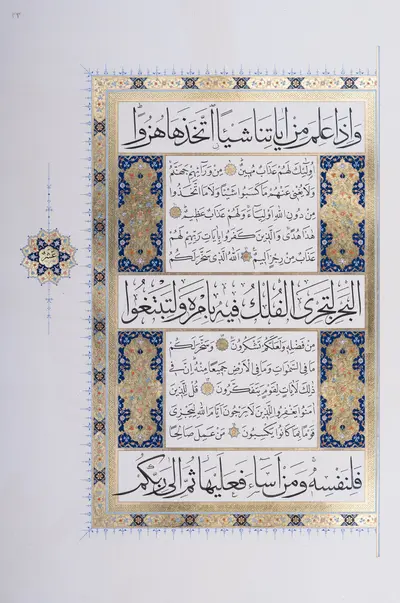 وَإِذَا عَلِمَ مِنْ آيَاتِنَا شَيْئًا اتَّخَذَهَا هُزُوًا
أُولَئِكَ لَهُمْ عَذَابٌ مُهِينٌ مِنْ وَرَائِهِمْ جَهَنَّمُ
وَلَا يُغْنِي عَنْهُمْ مَا كَسَبُوا شَيْئًا وَلَا مَا اتَّخَذُوا
مِنْ دُونِ اللَّهِ أَوْلِيَاءَ وَلَهُمْ عَذَابٌ عَظِيمٌ
هَذَا هُدًى وَالَّذِينَ كَفَرُوا بِآيَاتِ رَبِّهِمْ لَهُمْ
عَذَابٌ مِنْ رِجْزٍ أَلِيمٌ اللَّهُ الَّذِي سَخَّرَ لَكُمُ
الْبَحْرَ لِتَجْرِيَ الْفُلْكُ فِيهِ بِأَمْرِهِ وَلِتَبْتَغُوا
مِنْ فَضْلِهِ وَلَعَلَّكُمْ تَشْكُرُونَ وَسَخَّرَ لَكُمْ
مَا فِي السَّمَوَاتِ وَمَا فِي الْأَرْضِ جَمِيعًا مِنْهُ إِنَّ فِي
ذَلِكَ لَآيَاتٍ لِقَوْمٍ يَتَفَكَّرُونَ قُلْ لِلَّذِينَ
آمَنُوا يَغْفِرُوا لِلَّذِينَ لَا يَرْجُونَ أَيَّامَ اللَّهِ لِيَجْزِيَ
قَوْمًا بِمَا كَانُوا يَكْسِبُونَ مَنْ عَمِلَ صَالِحًا
فَلِنَفْسِهِ وَمَنْ أَسَاءَ فَعَلَيْهَا ثُمَّ إِلَى رَبِّكُمْ
عشر